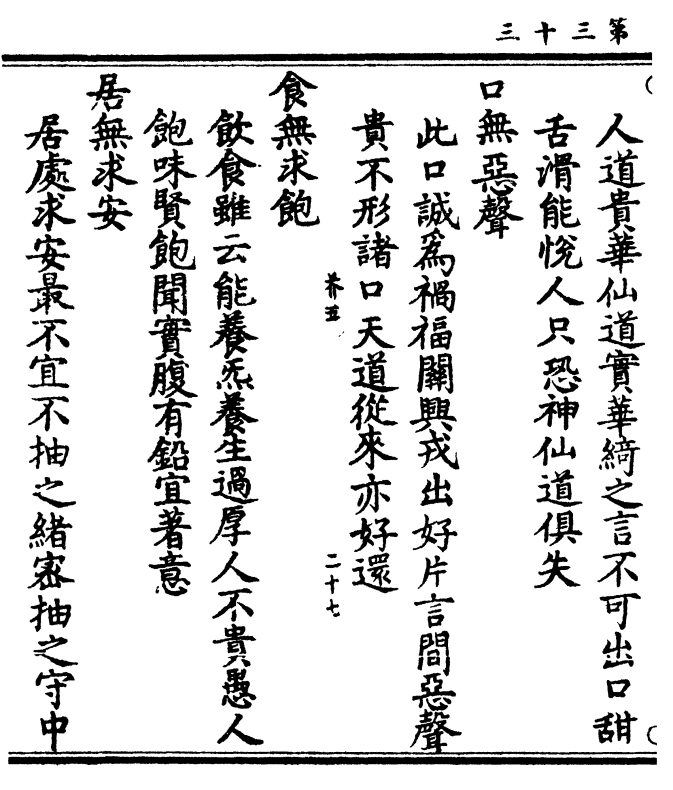 第三十三
人道貴華仙道實華綺之言不可出口甜
舌滑能悅人只恐神仙道俱失
口無惡聲
此口誠為禍福關興戎出好片言間惡聲
貴不形諸口天道從來亦好還
养五
二十七
食無求飽
飲食雖云能養炁養生過厚人不貴愚人
飽味賢飽聞實腹有鉛宜著意
居無求安
居處求安最不宜不抽之緒密抽之守中